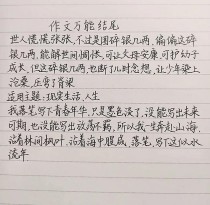 作文万能结尾
世人慌慌张张,不过是图碎银几两,偏偏这碎
银几两,能解世间惆怅,可让父母安康,可护幼子
成长,但这碎银几两,也断了儿时念想,让少年染上
沧桑,压弯了脊梁
适用主题:现实生活,人生
我落笔写下青春年华,只是墨色淡了,没能写出未来
可期,也没能写出放荡不羁,所以我一生奔赴山海,
沿着林间枫叶,沿着海中鲲咸,落笔,写下这似水
流年